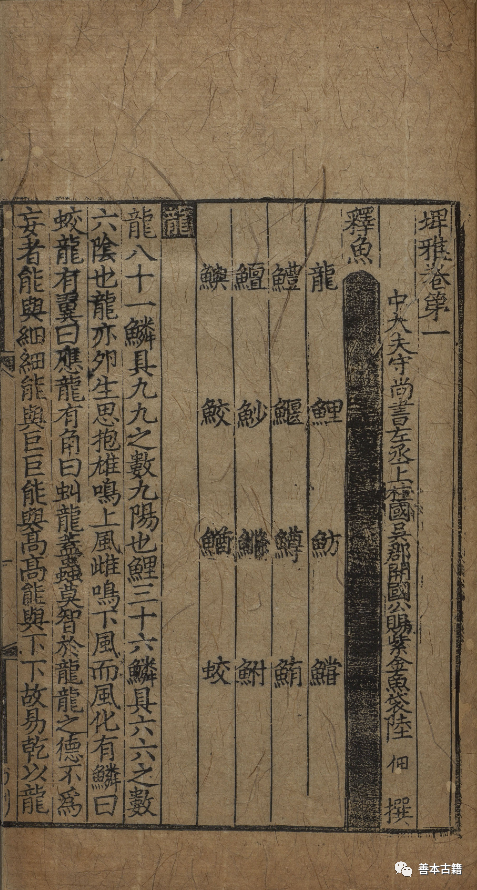 埤雅卷第一
中大夫守尚書左丞上柱國吳郡開國公賜紫金魚袋陸 佃 撰
釋魚
龍 鯉 魴 鱨
鱧 鰋 鱒 鮪
鱣 魦 鱮 鮒
鰅 鮫 鰌 蛟
龍
龍八十一鱗具九九之數九陽也鯉三十六鱗具六六之數
六陰也龍亦卵生思抱雄鳴上風雌鳴下風而風化有鱗曰
蛟龍有翼曰應龍有角曰虯龍蓋蟲莫智於龍龍之德不為
妄者能與細細能與巨巨能與高高能與下下故易乾以龍
善本古籍